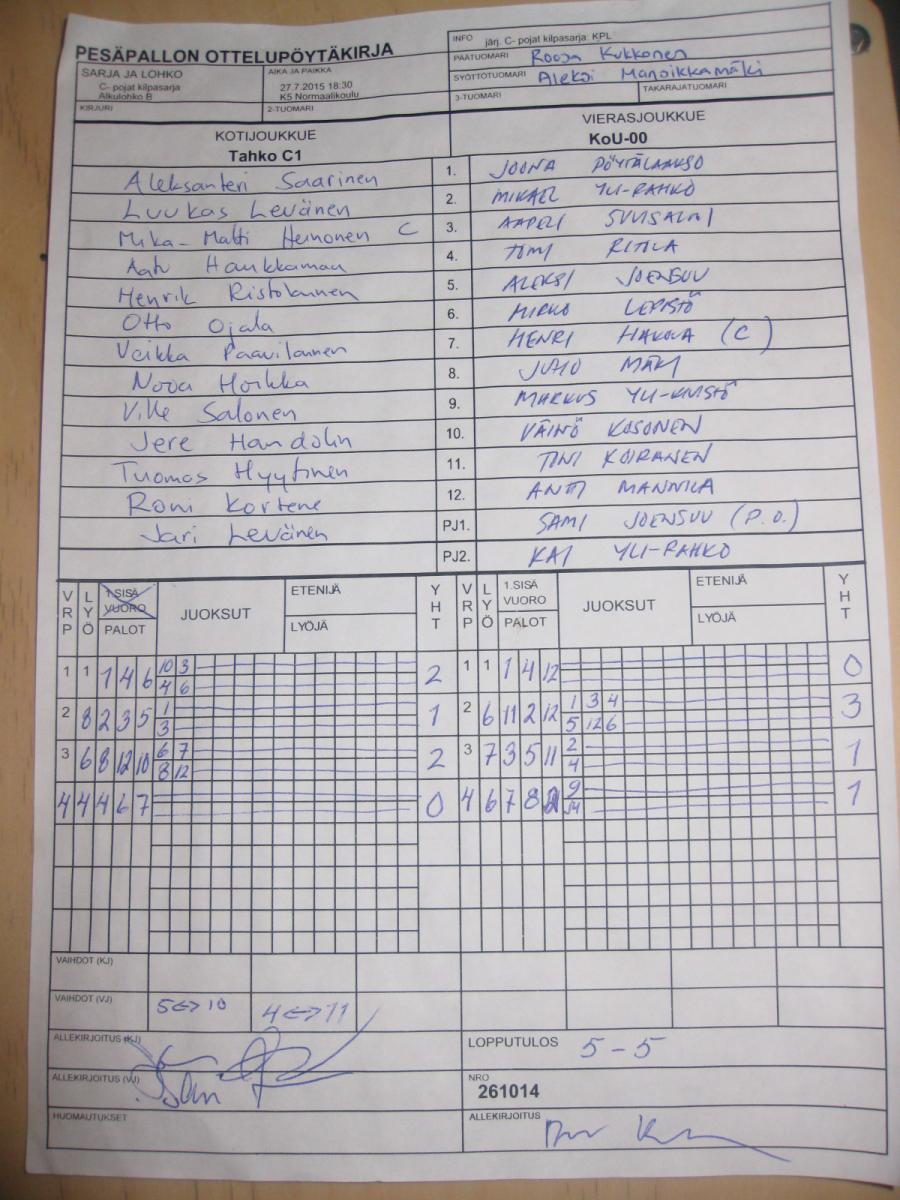 PESÄPALLON OTTELUPÖYTÄKIRJA
INFO järj. C- pojat kilpasarja: KPL
PÄÄTUOMARI Roosa Kukkonen
SYÖTTÖTUOMARI Aleksi
3-TUOMARI TAKARAJATUOMARI
SARJA JA LOHKO
C- pojat kilpasarja
Alkulohko B
AIKA JA PAIKKA
27.7.2015 18:30
K5 Normaalikoulu
KIRJURI 2-TUOMARI
KOTIJOUKKUE VIERASJOUKKUE
Tahko C1 KoU-00
Aleksanteri Saarinen 1. JOONA PÖYTÄLAAKSO
Luukas Levänen 2. MIKAEL YLI-RAHKO
Mika-Matti Heinonen C 3. AAPELI SUUSALMI
Aatu Haukkamaa 4. TOMI RITOLA
Henrik Ristolainen 5. ALEKSI JOENSUU
Otto Ojala 6. MIRKO LEPISTÖ
Veikka Paavilainen 7. HENRI HAKOLA (C)
Nooa Hoikka 8. JUHO MÄKI
Ville Salonen 9. MARKUS
Jere Handolin 10. VÄINÖ KOSONEN
Tuomas Hyytinen 11. TONI KOIRANEN
Roni Kortene 12. ANTTI MANNILA
Jari Levänen PJ1. SAMI JOENSUU (P.O.)
PJ2. KAI YLI-RAHKO
VRP LYÖ 1.SISÄ VUORO PALOT JUOKSUT ETENIJÄ LYÖJÄ YHT VRP LYÖ 1.SISÄ VUORO PALOT JUOKSUT ETENIJÄ LYÖJÄ YHT
1 1 1 4 6 10 3 2 1 1 1 4 12 0
4 6
2 8 2 3 5 1 1 2 6 11 2 12 1 3 4 3
3 5 12 6
3 6 8 12 10 6 7 2 3 7 3 5 11 2 1
8 12 4
4 4 4 6 7 0 4 6 7 8 9 1
VAIHDOT (KJ)
VAIHDOT (VJ) 5<->10 4<->11
ALLEKIRJOITUS (KJ) LOPPUTULOS 5-5
ALLEKIRJOITUS (VJ) NRO
261014
HUOMAUTUKSET ALLEKIRJOITUS